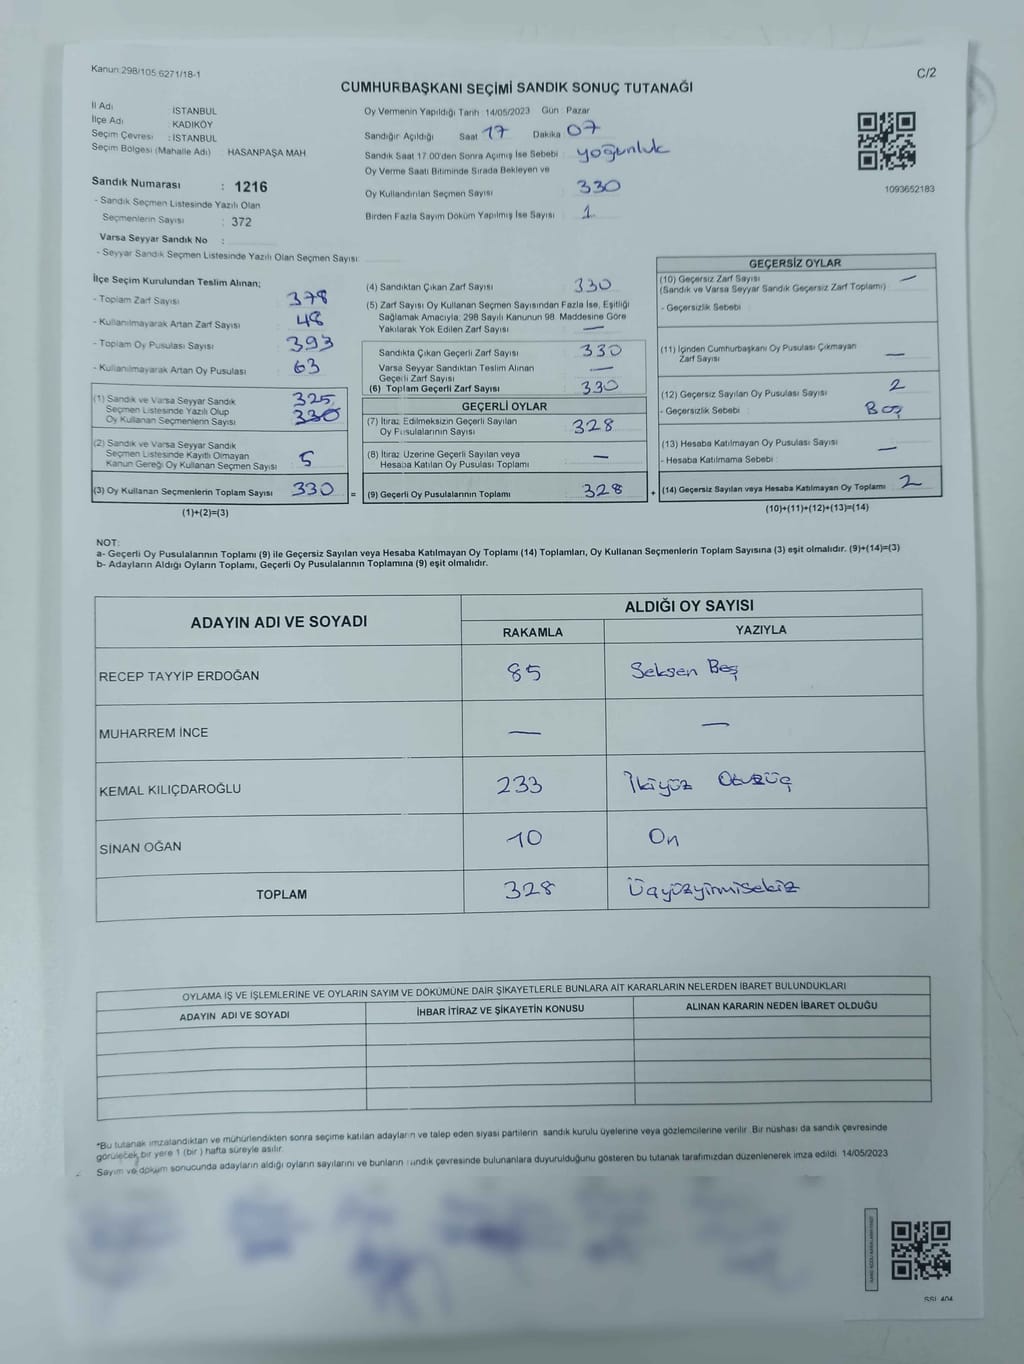 Kanun:298/105,6271/18-1
C/2
CUMHURBAŞKANI SEÇİMİ SANDIK SONUÇ TUTANAĞI
İl Adı : İSTANBUL
İlçe Adı : KADIKÖY
Seçim Çevresi : İSTANBUL
Seçim Bölgesi (Mahalle Adı) : HASANPAŞA MAH
Sandık Numarası : 1216
- Sandık Seçmen Listesinde Yazılı Olan
Seçmenlerin Sayısı : 372
Varsa Seyyar Sandık No :
- Seyyar Sandık Seçmen Listesinde Yazılı Olan Seçmen Sayısı:
Oy Vermenin Yapıldığı Tarih 14/05/2023 Gün : Pazar
Sandığın Açıldığı Saat 17 Dakika 07
Sandık Saat 17.00'den Sonra Açılmış İse Sebebi : yoğunluk
Oy Verme Saati Bitiminde Sırada Bekleyen ve
Oy Kullandırılan Seçmen Sayısı 330
Birden Fazla Sayım Döküm Yapılmış İse Sayısı 1
1093652183
İlçe Seçim Kurulundan Teslim Alınan;
- Toplam Zarf Sayısı 378
- Kullanılmayarak Artan Zarf Sayısı 48
- Toplam Oy Pusulası Sayısı 393
- Kullanılmayarak Artan Oy Pusulası 63
(1) Sandık ve Varsa Seyyar Sandık 325
Seçmen Listesinde Yazılı Olup 330
Oy Kullanan Seçmenlerin Sayısı
(2) Sandık ve Varsa Seyyar Sandık
Seçmen Listesinde Kayıtlı Olmayan
Kanun Gereği Oy Kullanan Seçmen Sayısı 5
(3) Oy Kullanan Seçmenlerin Toplam Sayısı 330
(1)+(2)=(3)
(4) Sandıktan Çıkan Zarf Sayısı 330
(5) Zarf Sayısı Oy Kullanan Seçmen Sayısından Fazla İse, Eşitliği
Sağlamak Amacıyla; 298 Sayılı Kanunun 98. Maddesine Göre
Yakılarak Yok Edilen Zarf Sayısı —
Sandıkta Çıkan Geçerli Zarf Sayısı 330
Varsa Seyyar Sandıktan Teslim Alınan —
Geçerli Zarf Sayısı
(6) Toplam Geçerli Zarf Sayısı 330
GEÇERLİ OYLAR
(7) İtiraz Edilmeksizin Geçerli Sayılan
Oy Pusulalarının Sayısı 328
(8) İtiraz Üzerine Geçerli Sayılan veya
Hesaba Katılan Oy Pusulası Toplamı —
= (9) Geçerli Oy Pusulalarının Toplamı 328 +
GEÇERSİZ OYLAR
(10) Geçersiz Zarf Sayısı —
(Sandık ve Varsa Seyyar Sandık Geçersiz Zarf Toplamı)
- Geçersizlik Sebebi :
(11) İçinden Cumhurbaşkanı Oy Pusulası Çıkmayan
Zarf Sayısı —
(12) Geçersiz Sayılan Oy Pusulası Sayısı 2
- Geçersizlik Sebebi : Boş
(13) Hesaba Katılmayan Oy Pusulası Sayısı —
- Hesaba Katılmama Sebebi :
(14) Geçersiz Sayılan veya Hesaba Katılmayan Oy Toplamı 2
(10)+(11)+(12)+(13)=(14)
NOT:
a- Geçerli Oy Pusulalarının Toplamı (9) ile Geçersiz Sayılan veya Hesaba Katılmayan Oy Toplamı (14) Toplamları, Oy Kullanan Seçmenlerin Toplam Sayısına (3) eşit olmalıdır. (9)+(14)=(3)
b- Adayların Aldığı Oyların Toplamı, Geçerli Oy Pusulalarının Toplamına (9) eşit olmalıdır.
ADAYIN ADI VE SOYADI
ALDIĞI OY SAYISI
RAKAMLA YAZIYLA
RECEP TAYYİP ERDOĞAN 85 Seksen Beş
MUHARREM İNCE — —
KEMAL KILIÇDAROĞLU 233 İkiyüz Otuzüç
SİNAN OĞAN 10 On
TOPLAM 328 Üçyüzyirmisekiz
OYLAMA İŞ VE İŞLEMLERİNE VE OYLARIN SAYIM VE DÖKÜMÜNE DAİR ŞİKAYETLERLE BUNLARA AİT KARARLARIN NELERDEN İBARET BULUNDUKLARI
ADAYIN ADI VE SOYADI İHBAR İTİRAZ VE ŞİKAYETİN KONUSU ALINAN KARARIN NEDEN İBARET OLDUĞU
*Bu tutanak imzalandıktan ve mühürlendikten sonra seçime katılan adayların ve talep eden siyasi partilerin sandık kurulu üyelerine veya gözlemcilerine verilir. Bir nüshası da sandık çevresinde
görülecek bir yere 1 (bir) hafta süreyle asılır.
Sayım ve döküm sonucunda adayların aldığı oyların sayılarını ve bunların sandık çevresinde bulunanlara duyurulduğunu gösteren bu tutanak tarafımızdan düzenlenerek imza edildi. 14/05/2023